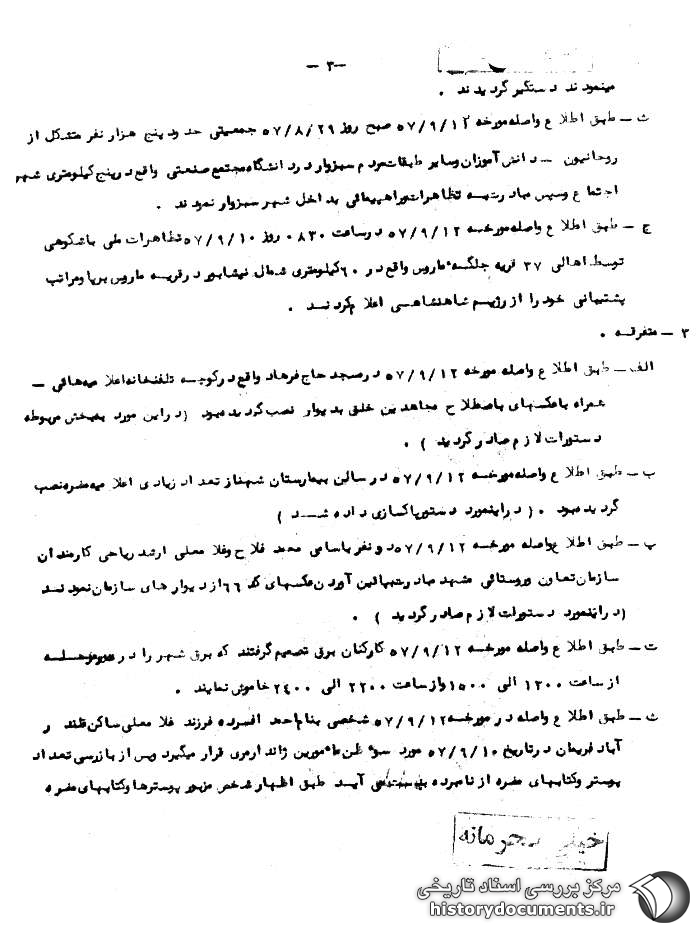 -۳-
مینمودند دستگیر گردیدند .
ث - طبق اطلاع واصله مورخه ۵۷/۹/۱۲ صبح روز ۵۷/۸/۲۹ جمعیتی حدود پنج هزار نفر متشکل از
روحانیون - دانش آموزان و سایر طبقات مردم سبزوار در دانشگاه مجتمع صنعتی واقع در پنج کیلومتری شهر
اجتماع و سپس مبادرت به تظاهرات و راهپیمائی بداخل شهر سبزوار نمودند .
ج - طبق اطلاع واصله مورخه ۵۷/۹/۱۲ در ساعت ۰۸۳۰ روز ۵۷/۹/۱۰ تظاهرات ملی باشکوهی
توسط اهالی ۳۷ قریه جلگه ماروس واقع در ۶۰ کیلومتری شمال نیشابور در قریه ماروس برپا و مراتب
پشتیبانی خود را از رژیم شاهنشاهی اعلام کردند .
۳ - متفرقه .
الف - طبق اطلاع واصله مورخه ۵۷/۹/۱۲ در مسجد حاج فرهاد واقع در کوچه تلفنخانه اعلامیه هائی -
همراه با عکسهای باصطلاح مجاهدین خلق بدیوار نصب گردیده بود (در این مورد به بخش مربوطه
دستورات لازم صادر گردید ) .
ب - طبق اطلاع واصله مورخه ۵۷/۹/۱۲ در سالن بیمارستان شهناز تعداد زیادی اعلامیه مضره نصب
گردیده بود . ( در اینمورد دستور پاکسازی داده شد )
پ - طبق اطلاع واصله مورخه ۵۷/۹/۱۲ دو نفر باسامی محمد فلاح و غلامعلی ارشد ریاحی کارمندان
سازمان تعاون و روستائی مشهد مبادرت بپائین آوردن عکسهای کد ۶۶ از دیوارهای سازمان نمودند
(در اینمورد دستورات لازم صادر گردید ) .
ت - طبق اطلاع واصله مورخه ۵۷/۹/۱۲ کارکنان برق تصمیم گرفتند که برق شهر را در دو مرحله
از ساعت ۱۲۰۰ الی ۱۵۰۰ و از ساعت ۲۲۰۰ الی ۲۴۰۰ خاموش نمایند .
ث - طبق اطلاع واصله در مورخه ۵۷/۹/۱۲ شخصی بنام احمد افسرده فرزند غلامعلی ساکن قلندر
آباد فریمان در تاریخ ۵۷/۹/۱۰ مورد سوء ظن مامورین ژاندارمری قرار میگیرد و پس از بازرسی تعداد
پوستر و کتابهای مضره از نامبرده بدست می آید طبق اظهار شخص مزبور پوسترها و کتابهای مضره
خیلی محرمانه
مرکز بررسی اسناد تاریخی
historydocuments.ir